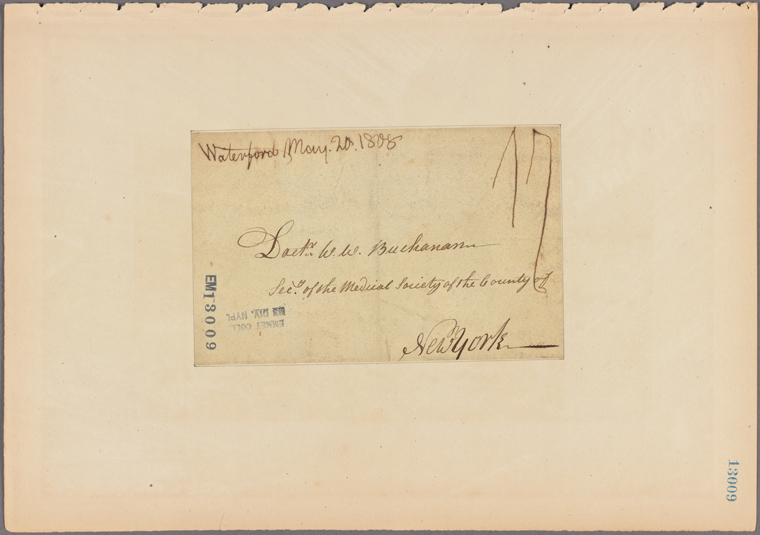 Waterford May. 20. 1808
17
Doct.r W. W. Buchanan
Sec.y of the Medical Society of the County of
New York
EM13009
EMMET COLL.
MS DIV. NYPL
13009